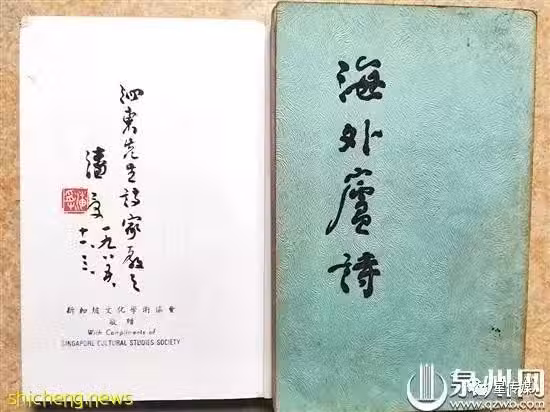 泗東先生詩家教之
潘受
一九八五、
十一、三
新加坡文化學術協會
敬贈
With Compliments of
SINGAPORE CULTURAL STUDIES SOCIETY
海外廬詩
shicheng.news
泉州网
掌传媒